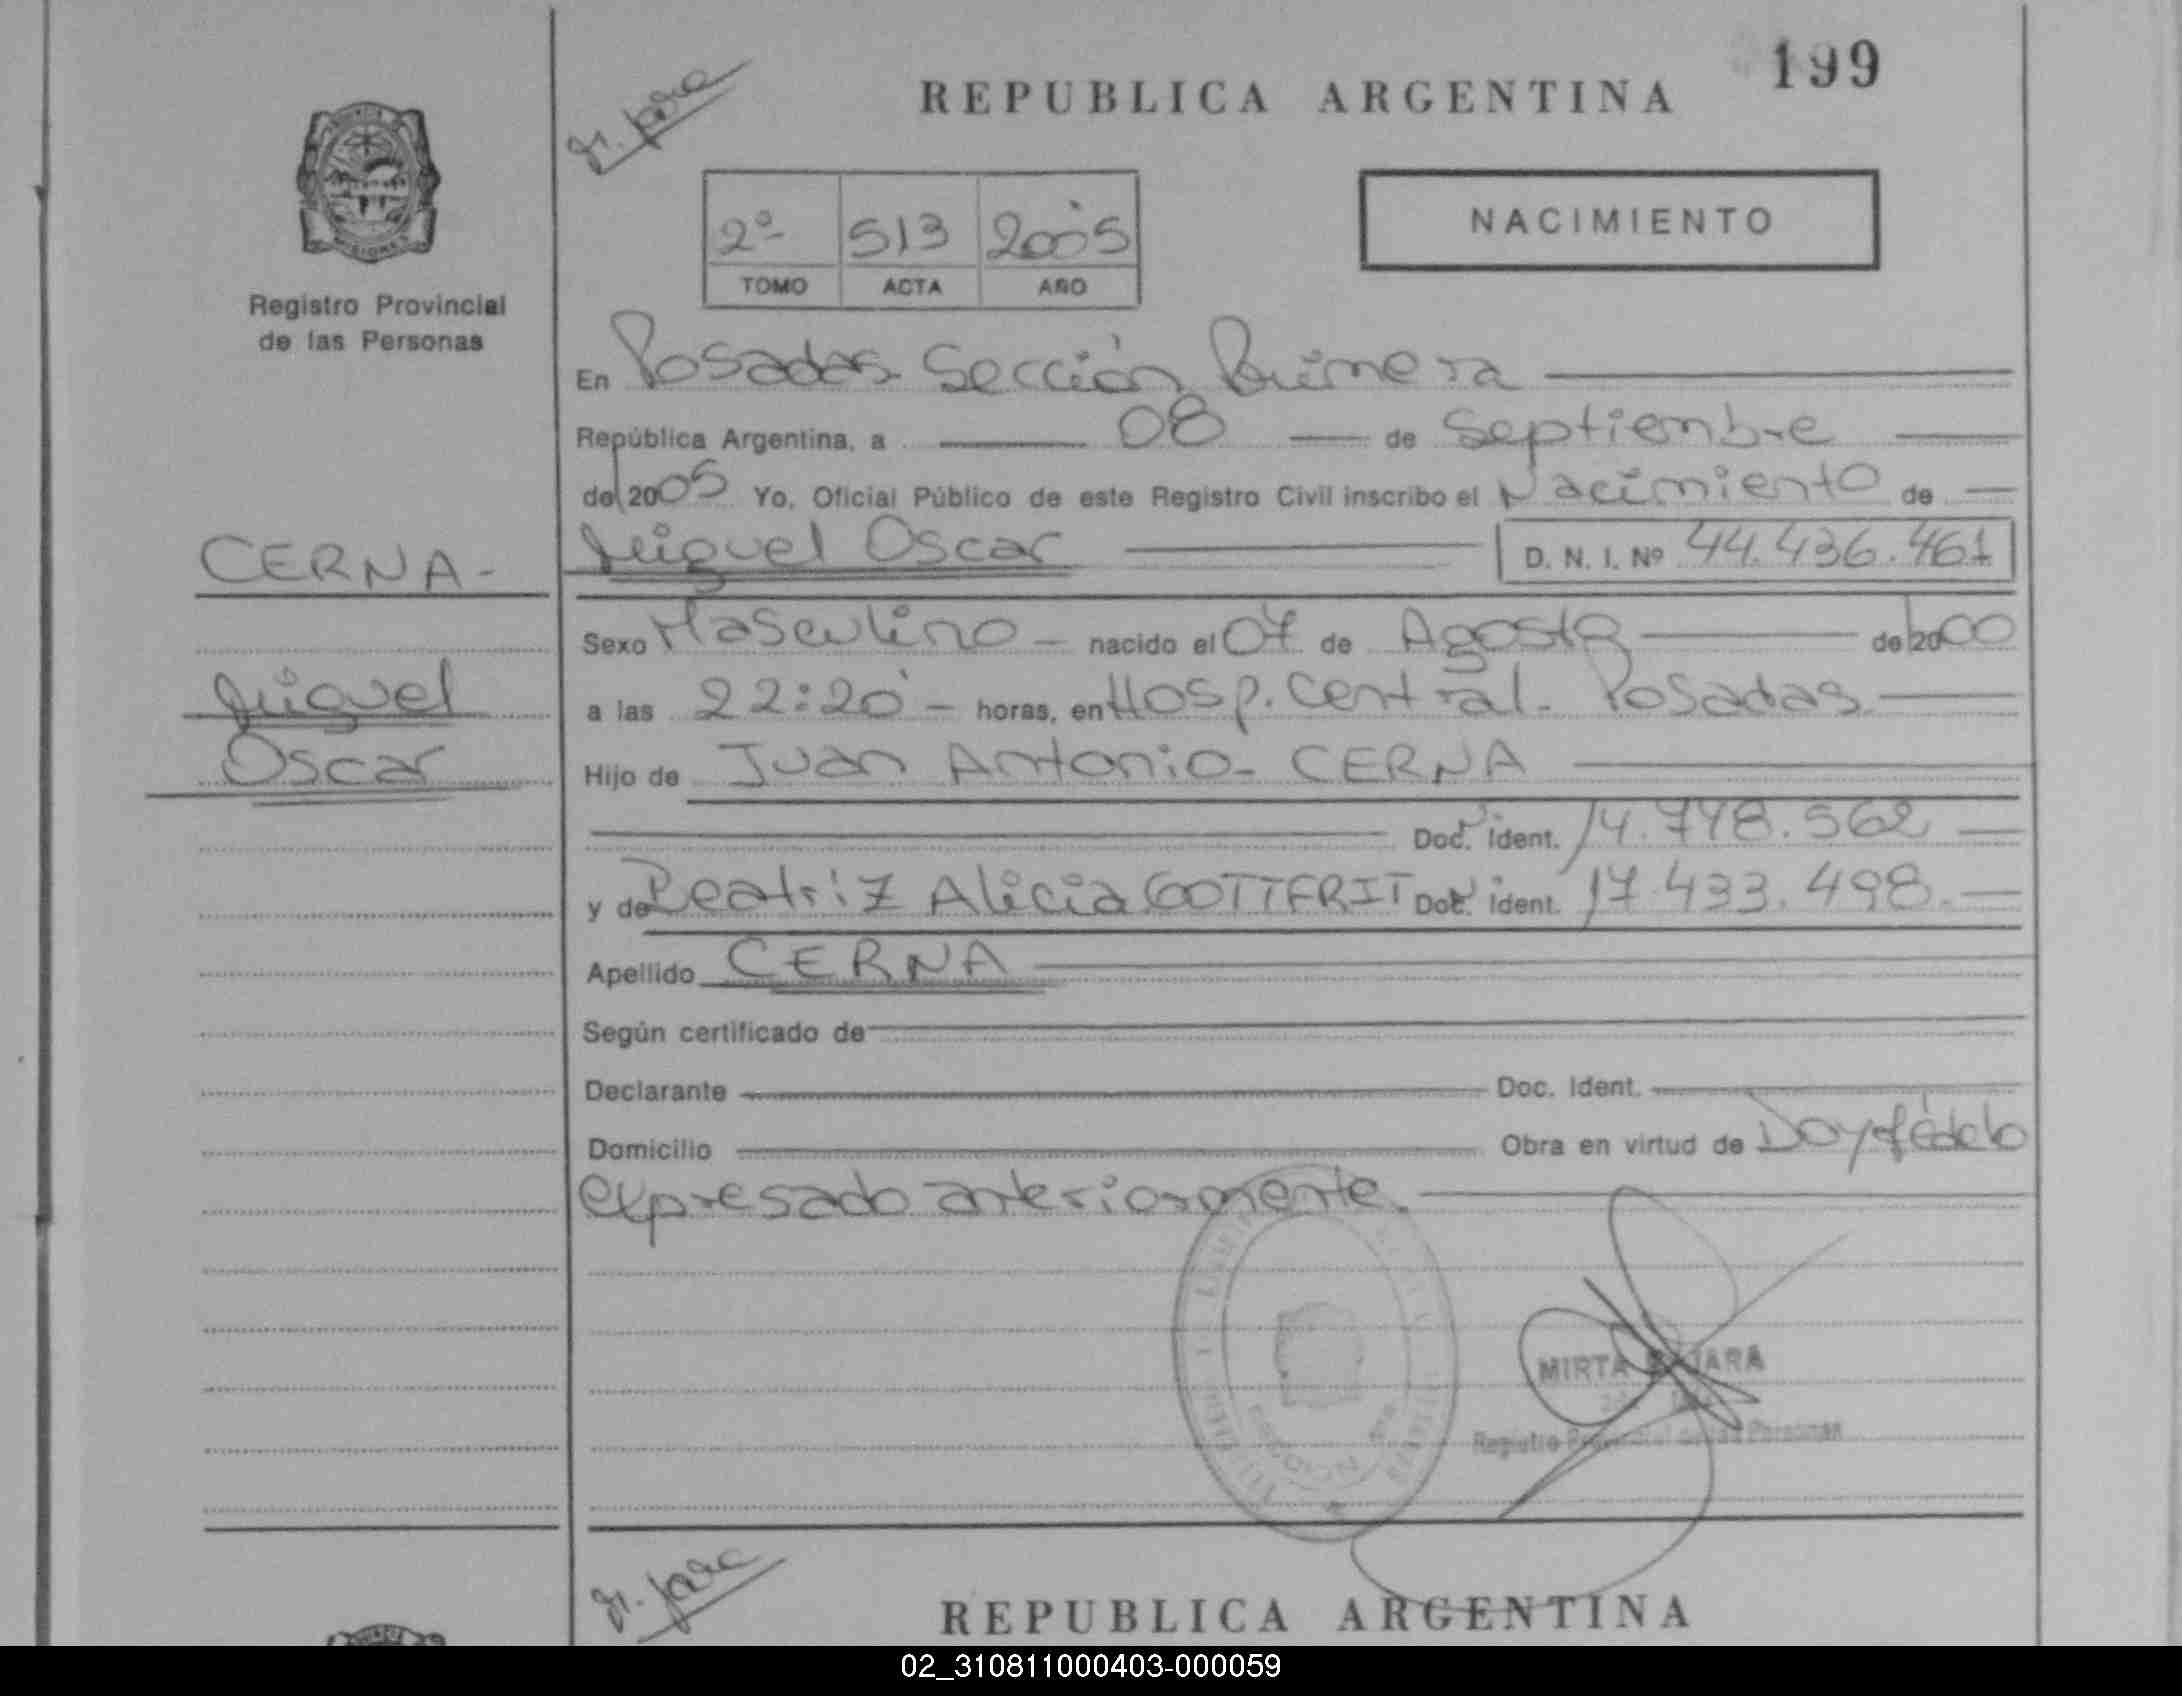 199
M. Jara
REPUBLICA ARGENTINA
NACIMIENTO
2º 513 2005
TOMO ACTA AÑO
Registro Provincial
de las Personas
En Posadas Sección Primera
República Argentina, a 08 de Septiembre
de 2005 Yo, Oficial Público de este Registro Civil inscribo el Nacimiento de
CERNA-
Miguel Oscar D. N. I. Nº 44.436.461
Sexo Masculino - nacido el 07 de Agosto de 2000
Miguel
Oscar
a las 22:20 - horas, en Hosp. Central. Posadas
Hijo de Juan Antonio - CERNA
Doc. Ident. 14.748.562
y de Beatriz Alicia GOTTFRIT Doc. Ident. 17.433.498.
Apellido CERNA
Según certificado de
Declarante Doc. Ident.
Domicilio Obra en virtud de Doy fé de lo
expresado anteriormente.
MIRTA JARA
Registro Provincial de las Personas
M. Jara
REPUBLICA ARGENTINA
02_310811000403-000059